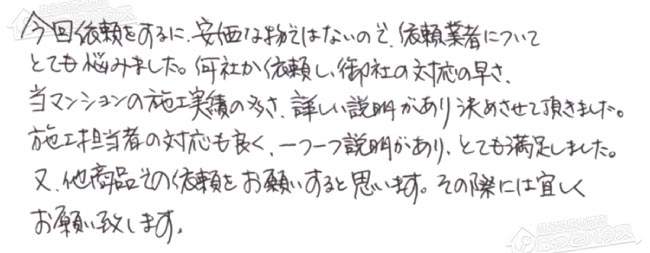 今回依頼をするに、安価な物ではないので、依頼業者について
とても悩みました。何社か依頼し、御社の対応の早さ、
当マンションの施工実績の多さ、詳しい説明があり決めさせて頂きました。
施工担当者の対応も良く、一つ一つ説明があり、とても満足しました。
又、他商品での依頼をお願いすると思います。その際には宜しく
お願い致します。